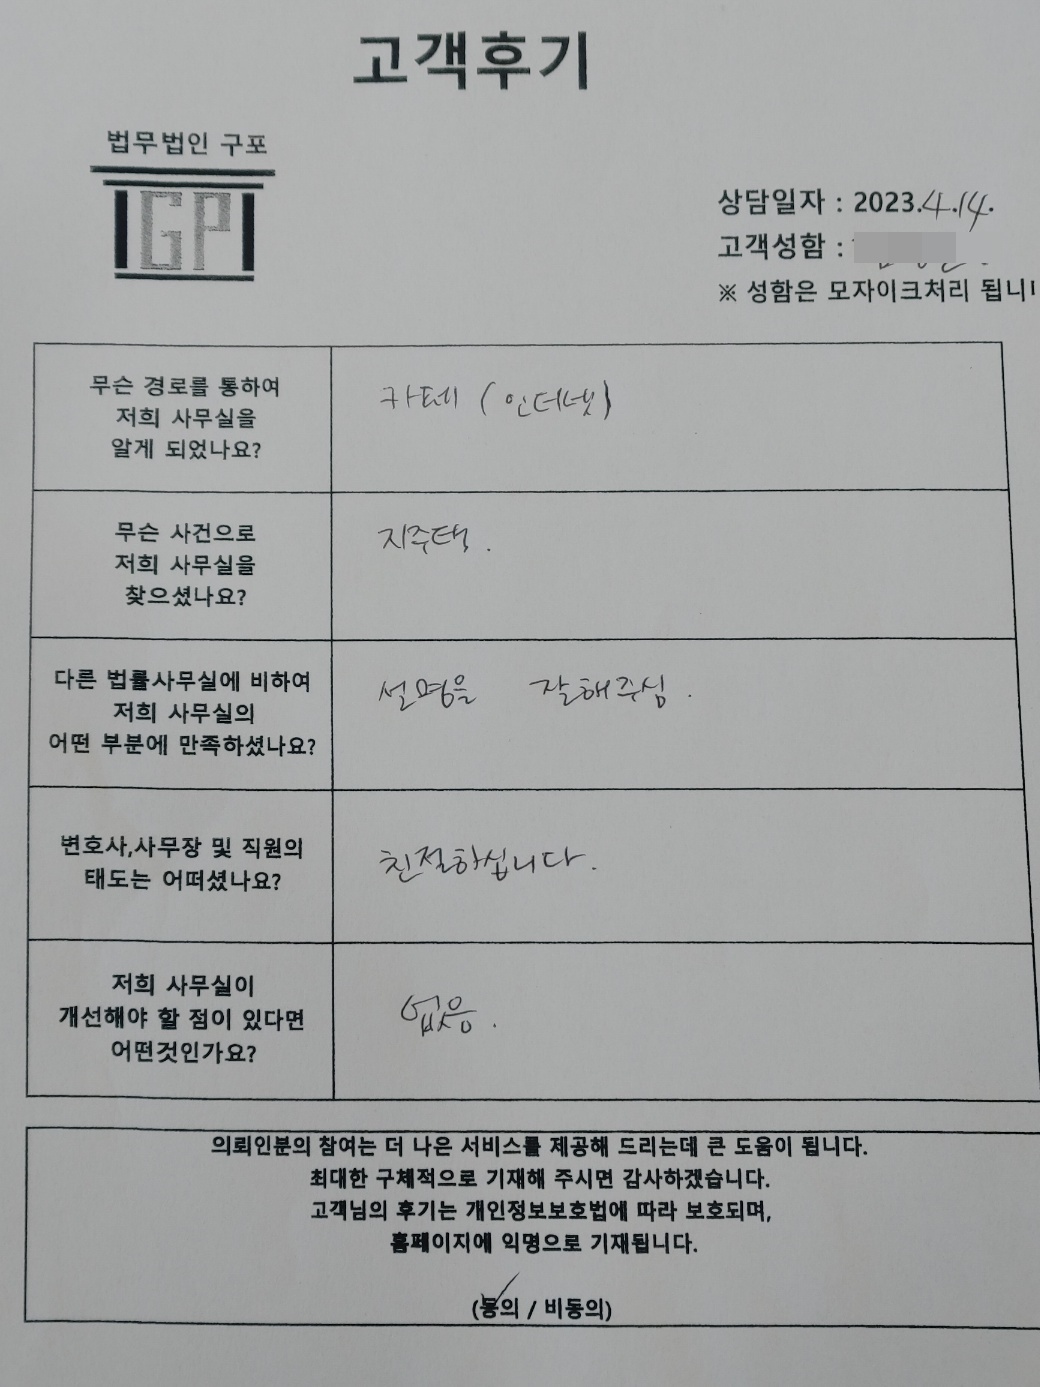 고객후기
법무법인 구포
GP
상담일자 : 2023.4.14.
고객성함 :
※ 성함은 모자이크처리 됩니
무슨 경로를 통하여
저희 사무실을
알게 되었나요?
카페 (인터넷)
무슨 사건으로
저희 사무실을
찾으셨나요?
지주택.
다른 법률사무실에 비하여
저희 사무실의
어떤 부분에 만족하셨나요?
설명을 잘해주심.
변호사,사무장 및 직원의
태도는 어떠셨나요?
친절하십니다.
저희 사무실이
개선해야 할 점이 있다면
어떤것인가요?
없음.
의뢰인분의 참여는 더 나은 서비스를 제공해 드리는데 큰 도움이 됩니다.
최대한 구체적으로 기재해 주시면 감사하겠습니다.
고객님의 후기는 개인정보보호법에 따라 보호되며,
홈페이지에 익명으로 기재됩니다.
(동의 / 비동의)